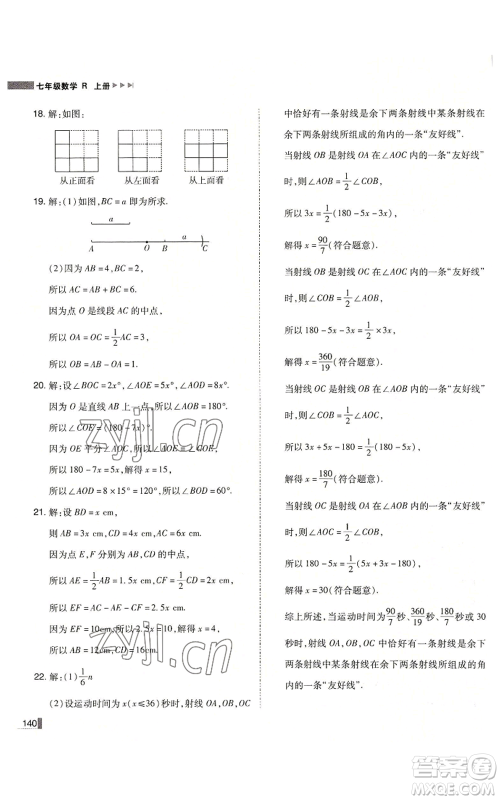 七年级数学 R 上册
18. 解:如图:
从正面看 从左面看 从上面看
19. 解:(1)如图,BC=a 即为所求.
a
a
A O B C
(2)因为 AB=4,BC=2,
所以 AC=AB+BC=6.
因为点 O 是线段 AC 的中点,
所以 OA=OC=1/2 AC=3,
所以 OB=AB-OA=1.
20. 解:设∠BOC=2x°,∠AOE=5x°,∠AOD=8x°.
因为 O 是直线 AB 上一点,所以∠AOB=180°.
所以∠COE=(180-7x)°.
因为 OE 平分∠AOC,所以∠AOE=∠COE.
所以 180-7x=5x,解得 x=15.
所以∠AOD=8×15°=120°.
21. 解:设 BD=x cm,
则 AB=3x cm,CD=4x cm,AC=6x cm.
因为点 E,F 分别为 AB,CD 的中点,
所以 AE=1/2 AB=1.5x cm,CF=1/2 CD=2x cm.
所以 EF=AC-AE-CF=2.5x cm.
因为 EF=10cm,所以 2.5x=10,解得 x=4.
所以 AB=12cm,CD=16cm.
22. 解:(1)1/6 n
(2)设运动时间为 x(x≤36)秒时,射线 OA,OB,OC
140
中恰好有一条射线是余下两条射线中某条射线在
余下两条射线所组成的角内的一条“友好线”.
当射线 OB 是射线 OA 在∠AOC 内的一条“友好线”
时,则∠AOB=1/2∠COB,
所以 3x=1/2(180-5x-3x),
解得 x=90/7(符合题意).
当射线 OB 是射线 OC 在∠AOC 内的一条“友好线”
时,则∠COB=1/2∠AOB,
所以 180-5x-3x=1/2×3x,
解得 x=360/19(符合题意).
当射线 OC 是射线 OB 在∠AOB 内的一条“友好线”
时,则∠COB=1/2∠AOC,
所以 3x+5x-180=1/2(180-5x),
解得 x=180/7(符合题意).
当射线 OC 是射线 OA 在∠AOB 内的一条“友好线”
时,则∠AOC=1/2∠COB,
所以 180-5x=1/2(5x+3x-180),
解得 x=30(符合题意).
综上所述,当运动时间为 90/7,360/19,180/7 秒或 30 秒
时,射线 OA,OB,OC 中恰好有一条射线是余下
两条射线中某条射线在余下两条射线所组成的角
内的一条“友好线”.
zyjl.cn
zyjl.cn
作业精灵